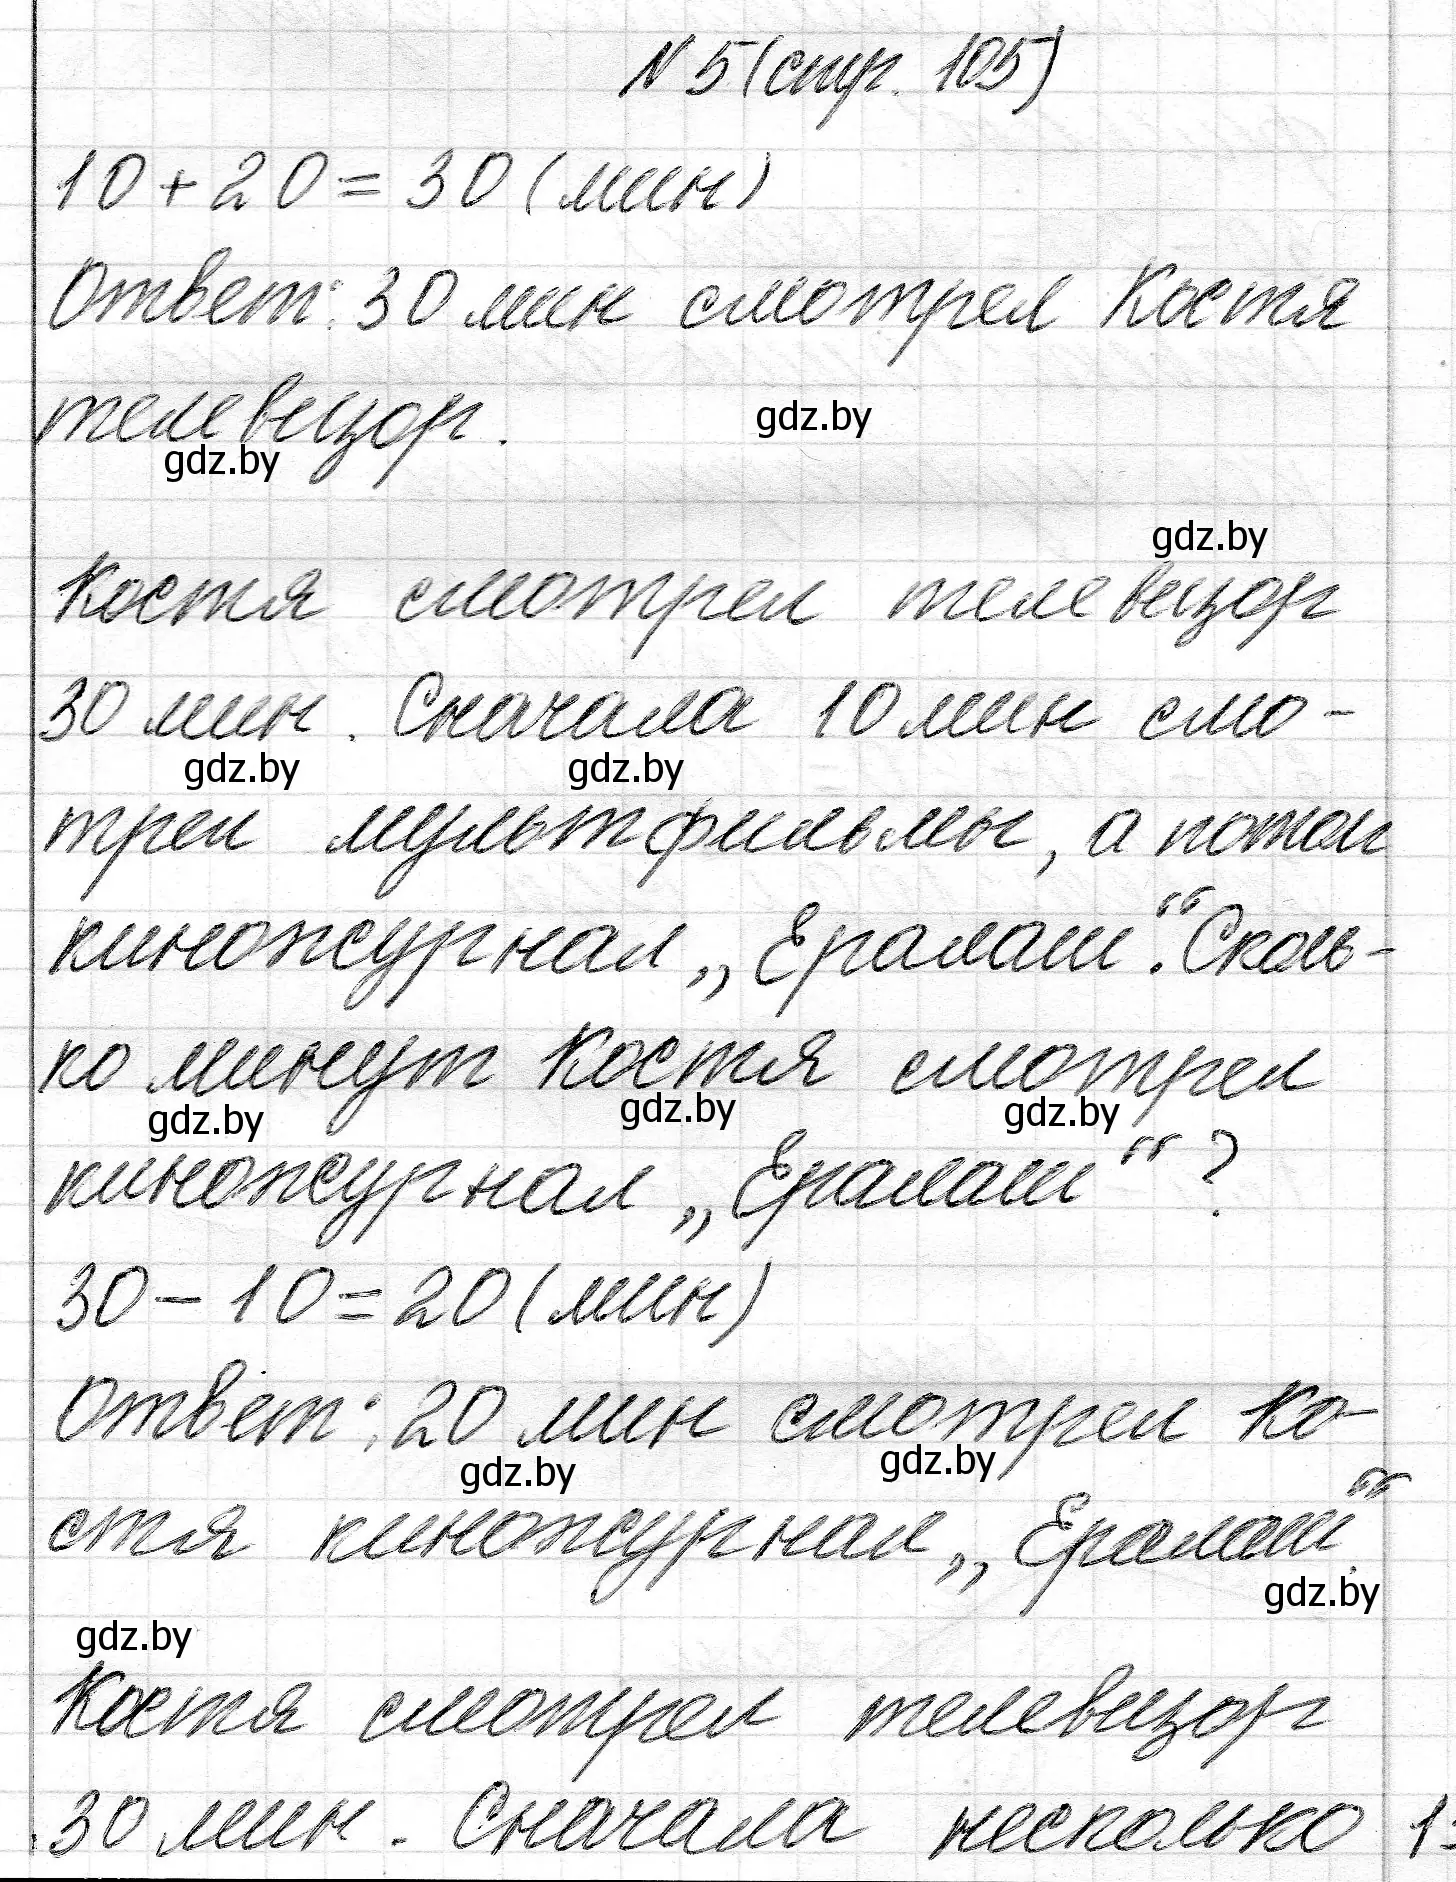 N 5 (стр. 105)
10 + 20 = 30 (мин)
Ответ: 30 мин смотрел Костя
телевизор.
gdz.by
gdz.by
gdz.by
Костя смотрел телевизор
30 мин. Сначала 10 мин смо-
gdz.by gdz.by
трел мультфильмы, а потом
киножурнал „Ералаш“. Сколь-
ко минут Костя смотрел
gdz.by gdz.by gdz.by
киножурнал „Ералаш“?
30 - 10 = 20 (мин)
Ответ: 20 мин смотрел Ко-
gdz.by gdz.by
стя киножурнал „Ералаш“.
gdz.by
gdz.by
Костя смотрел телевизор
30 мин. Сначала несколько